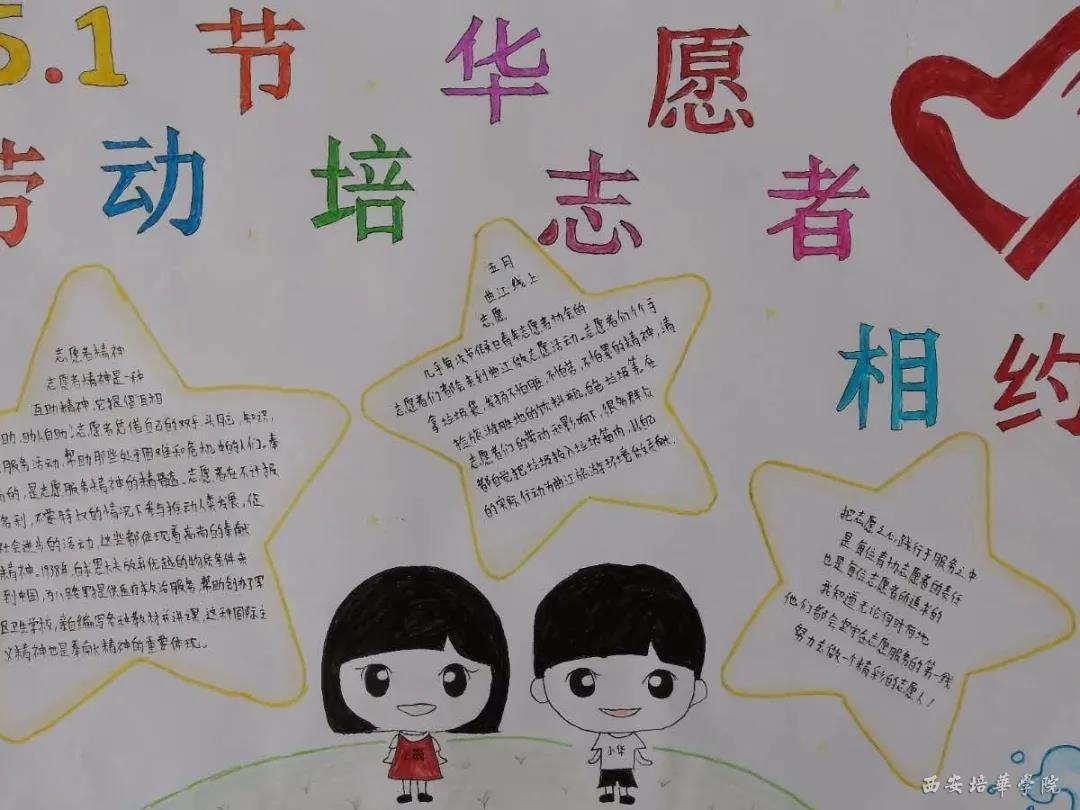 5.1
节
华
愿
劳
动
培
志
者
相
约
志愿者精神
志愿者精神是一种
互助精神.它提倡互相
助,助人自助;志愿者凭借自己的双手,头脑,知识,
服务活动,帮助那些处于困难和危机中的人们。奉
的,是志愿服务精神的精髓。志愿者在不计报
名利,不要特权的情况下参与推动人类发展,促
社会进步的活动,这些都体现着高尚的奉献
精神。1938年,白求恩大夫放弃优越的物质条件来
到中国,为八路军提供医疗救治服务,帮助创办了军
区卫生学校,亲自编写各种教材并讲课,这种国际主
义精神也是奉献精神的重要体现。
五月
曲江线上
志愿
几乎每次节假日青年志愿者协会的
志愿者们都会来到曲江做志愿活动。志愿者们个个手
拿垃圾袋,发扬不怕脏,不怕苦,不怕累的精神,清
捡旅游胜地的饮料瓶,白色垃圾等,在
志愿者们的带动和影响下,很多群众
都自觉把垃圾投入垃圾箱内,以自己
的实际行动为曲江旅游环境做贡献.
把志愿之心,践行于服务之中
是每位青协志愿者的责任
也是每位志愿者的追求的
我知道无论何时何地
他们都会坚守在志愿服务的第一线
努力去做一个精彩的志愿人!
小华
西安培華学院